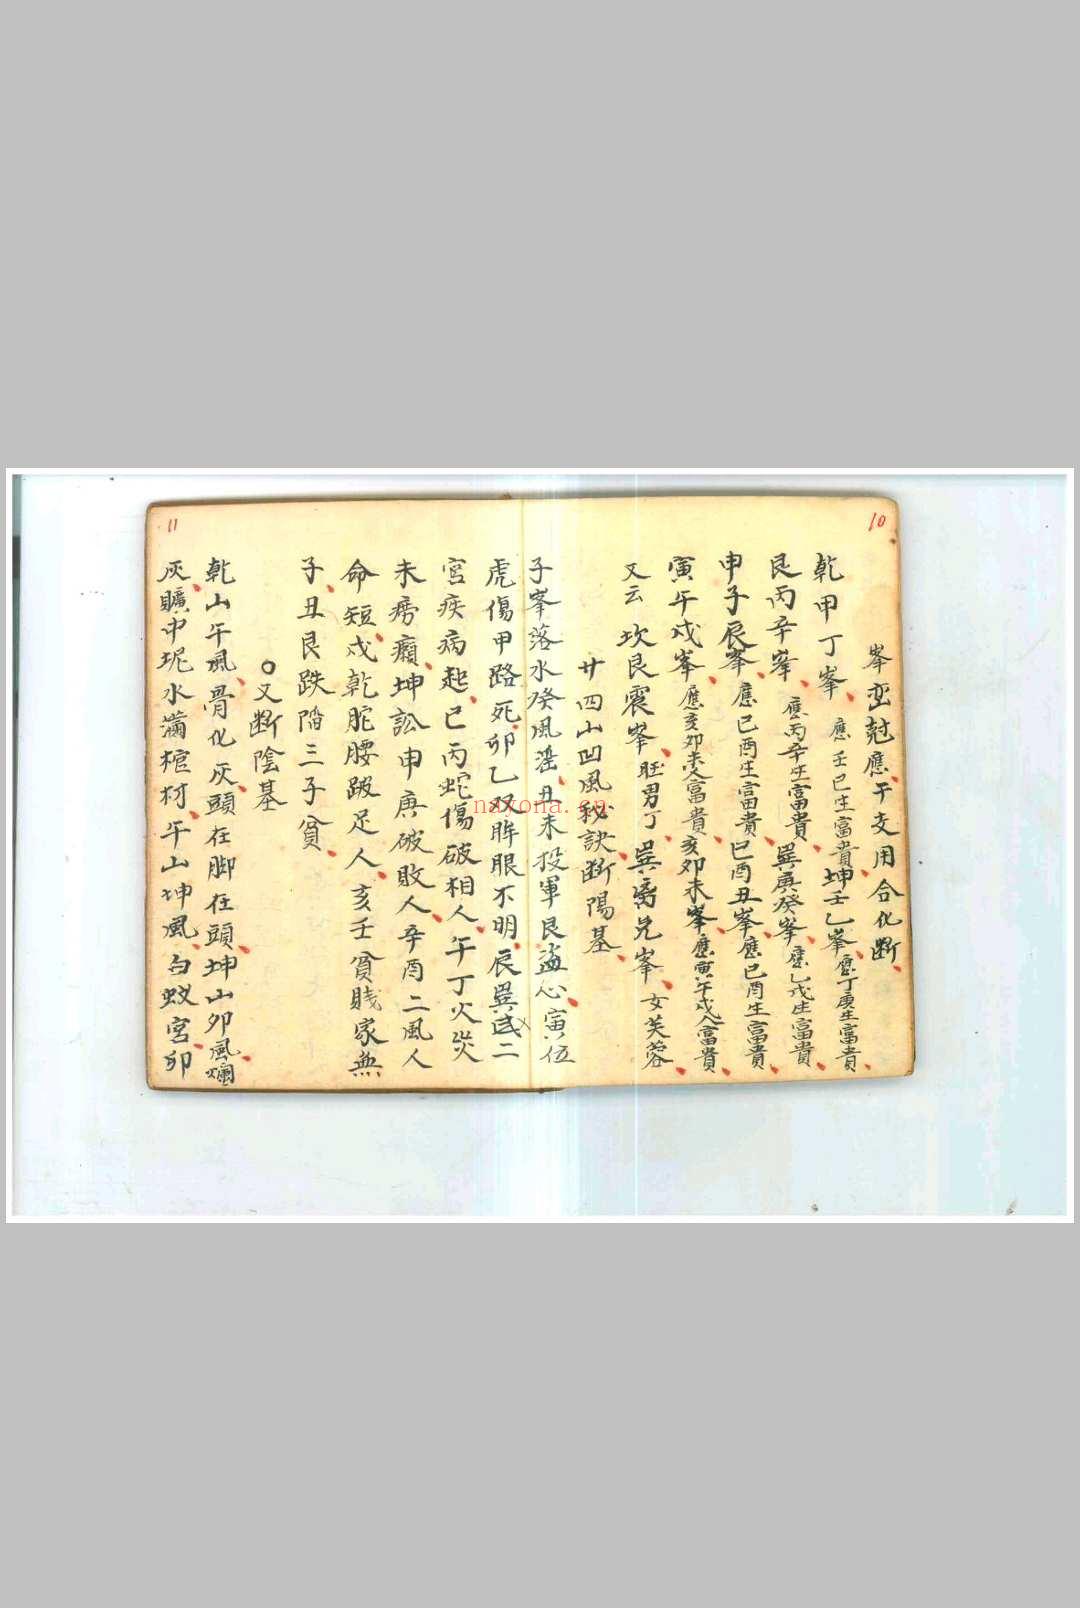 10
峯峦尅應干支用合化断
乾甲丁峯應壬巳生富貴坤壬乙峯應丁庚生富貴
艮丙辛峯應丙辛生富貴巽庚癸峯應乙戌生富貴
申子辰峯應巳酉生富貴巳酉丑峯應巳酉生富貴
寅午戌峯應亥卯未人富貴亥卯未峯應寅午戌人富貴
又云坎艮震峯旺男丁巽离兑峯女芙蓉
廿四山凹風秘訣断陽基
子峯落水癸風滛丑未投軍艮盗心寅伍
11
虎傷甲路死卯乙双眸眼不明辰巽二
宮疾病起巳丙蛇傷破相人午丁火災
未痨癩坤訟申庚破敗人辛酉二風人
命短戌乾駝腰跛足人亥壬貧賤家無
子丑艮跌蹈三子貧
又断陰基
乾山午風骨化灰頭在脚在頭坤山卯風爛
灰曠中坭水滿棺材午山坤風白蚁宮卯
nayona.cn